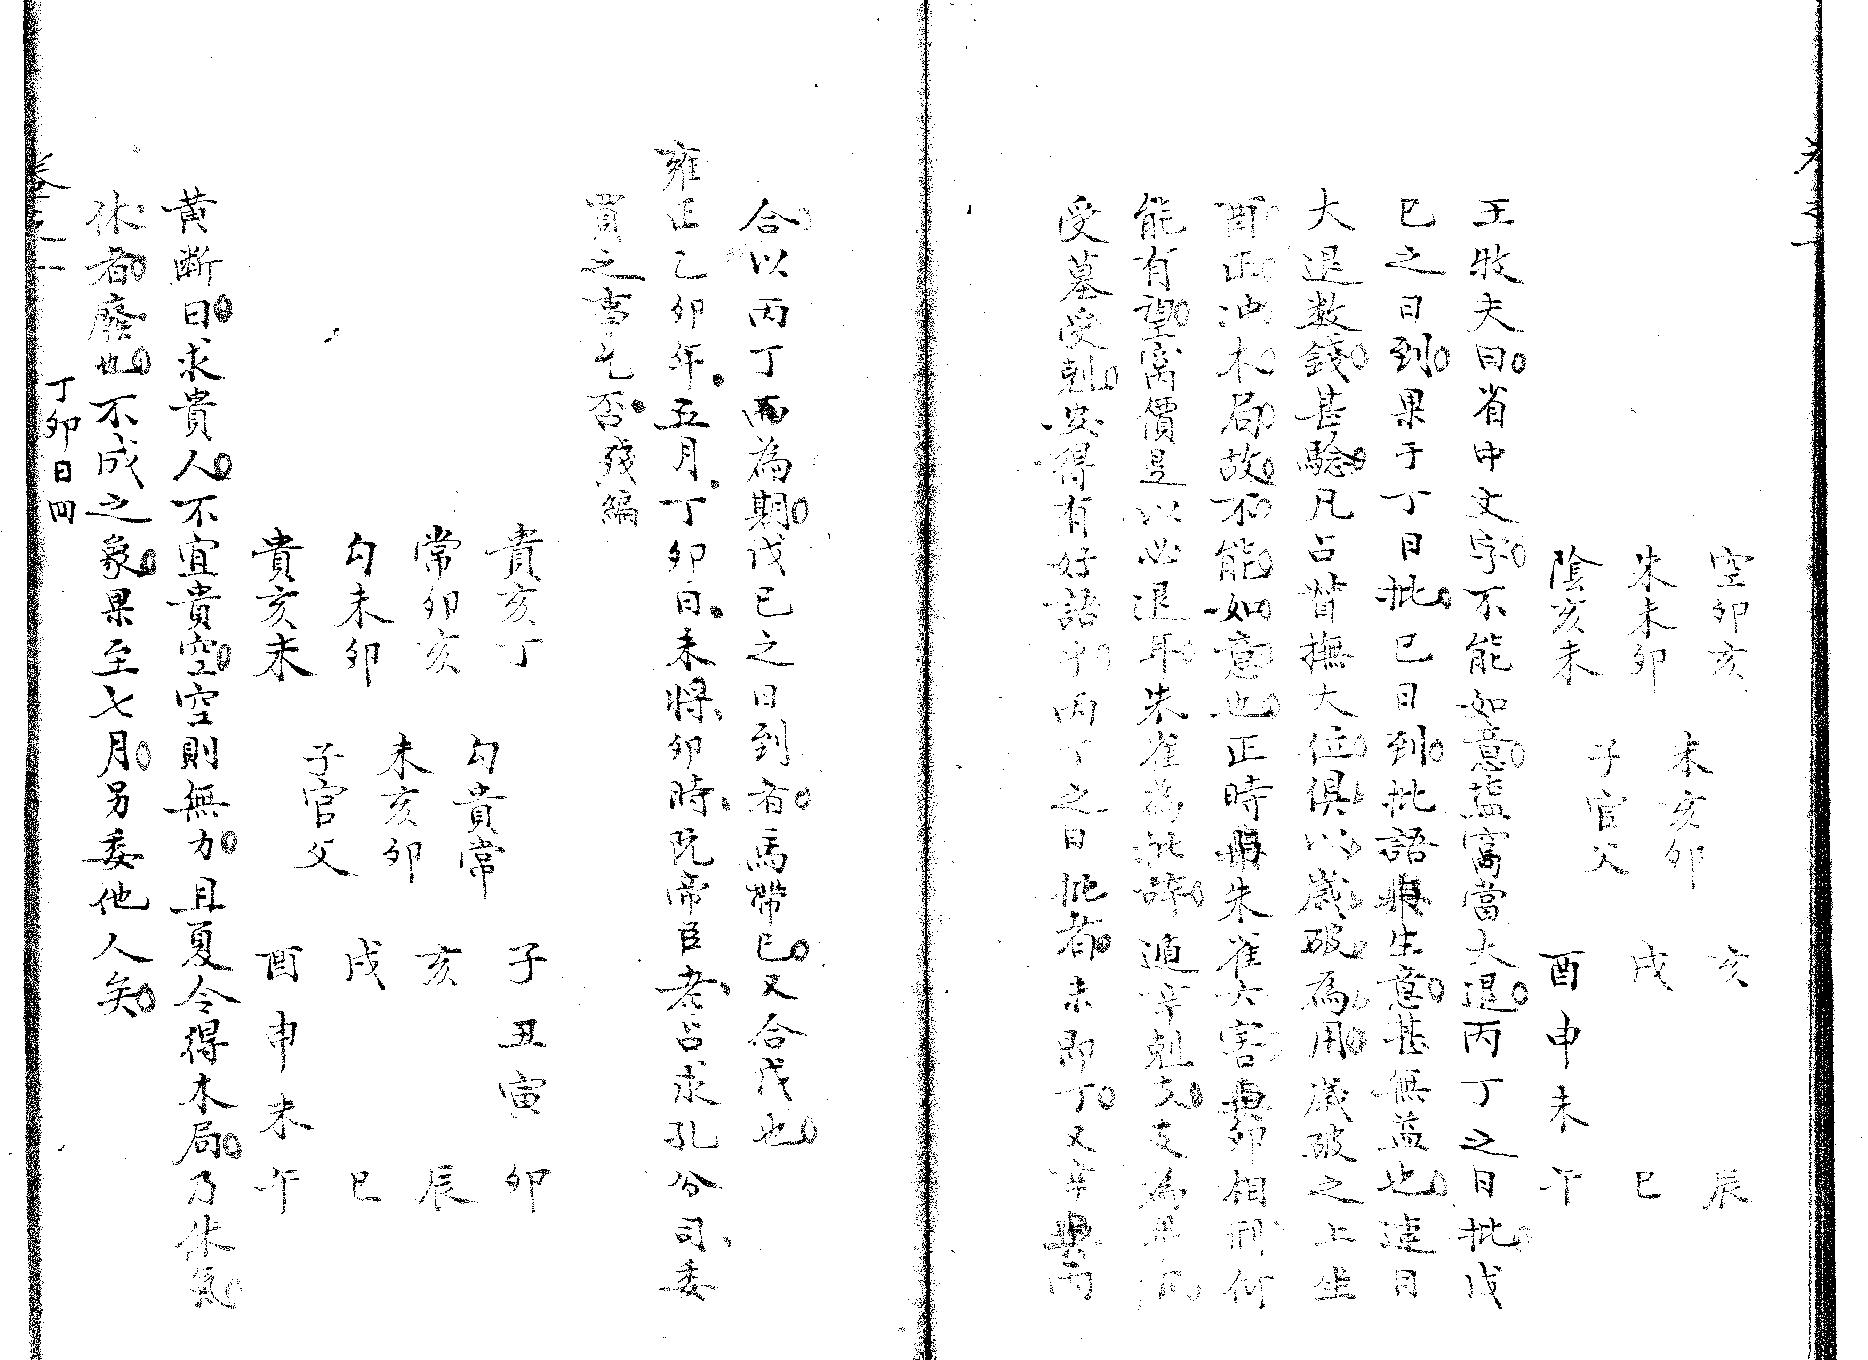 空卯亥
朱未卯
陰亥未
未亥卯
子官父
亥 辰
戌 巳
酉申未午
王牧夫曰省中文字不能如意蓋寓當大退丙丁之日批戊
巳之日到果于丁日批巳日到批語與生意甚無益也這日
大退數錢甚驗凡占督撫大位俱以歲破為用歲破之上坐
酉正冲木局故不能如意也正時與朱雀六害與卯相刑何
能有望寓價是以必退耳朱雀為批辭遁辛剋支支為
受墓受剋安得有好語中丙丁之日批者未即丁又辛與丙
合以丙丁而為期戊巳之日到者馬帶巳又合戊也
雍正乙卯年五月丁卯日未將卯時阮帝臣老占求孔分司委
買之事乞否 殘編
貴亥丁
常卯亥
勾未卯
貴亥未
勾貴常
未亥卯
子官父
子丑寅卯
亥 辰
戌 巳
酉申未午
黄斷曰求貴人不宜貴空空則無力且夏令得木局乃休氣
休者廢也不成之象果至七月另委他人矣
丁卯日四